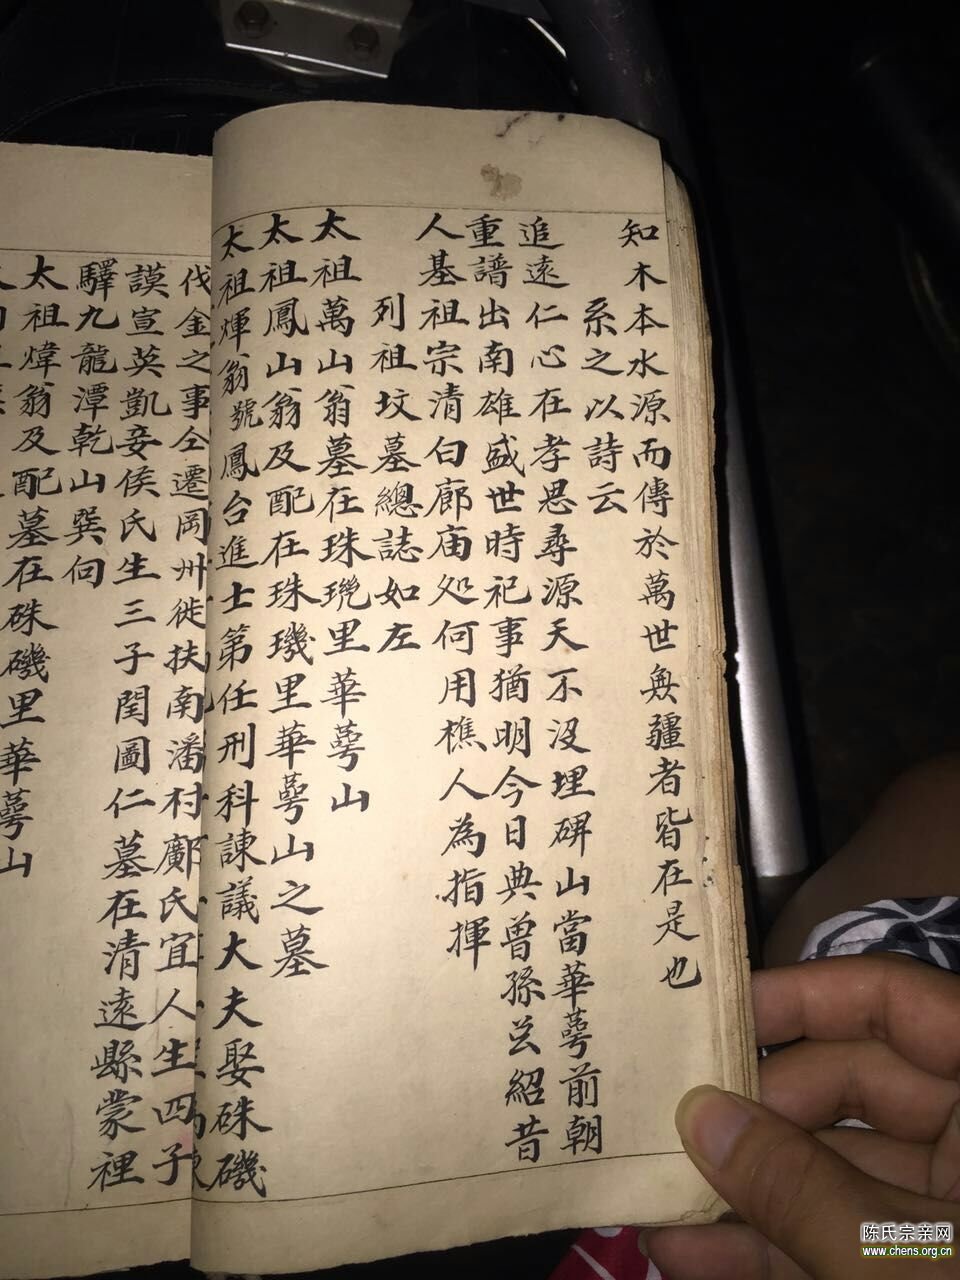 知木本水源而傳於萬世無疆者皆在是也
系之以詩云
追遠仁心在孝思尋源天不没埋碑山當華萼前朝
重譜出南雄盛世時祀事猶明今日典曾孫公紹昔
人基祖宗清白廊庙处何用樵人為指揮
列祖坟墓總誌如左
太祖萬山翁墓在珠璣里華萼山
太祖鳳山翁及配在珠璣里華萼山之墓
太祖煇翁號鳳台進士第任刑科諫議大夫娶硃磯
伐金之事仝遷岡州徙扶南潘村鄺氏宜人生四子
謨宣英凱妾侯氏生三子閏圖仁墓在清遠縣蒙裡
驛九龍潭乾山巽向
太祖煒翁及配墓在硃磯里華萼山
陈氏宗亲网
www.chens.org.cn